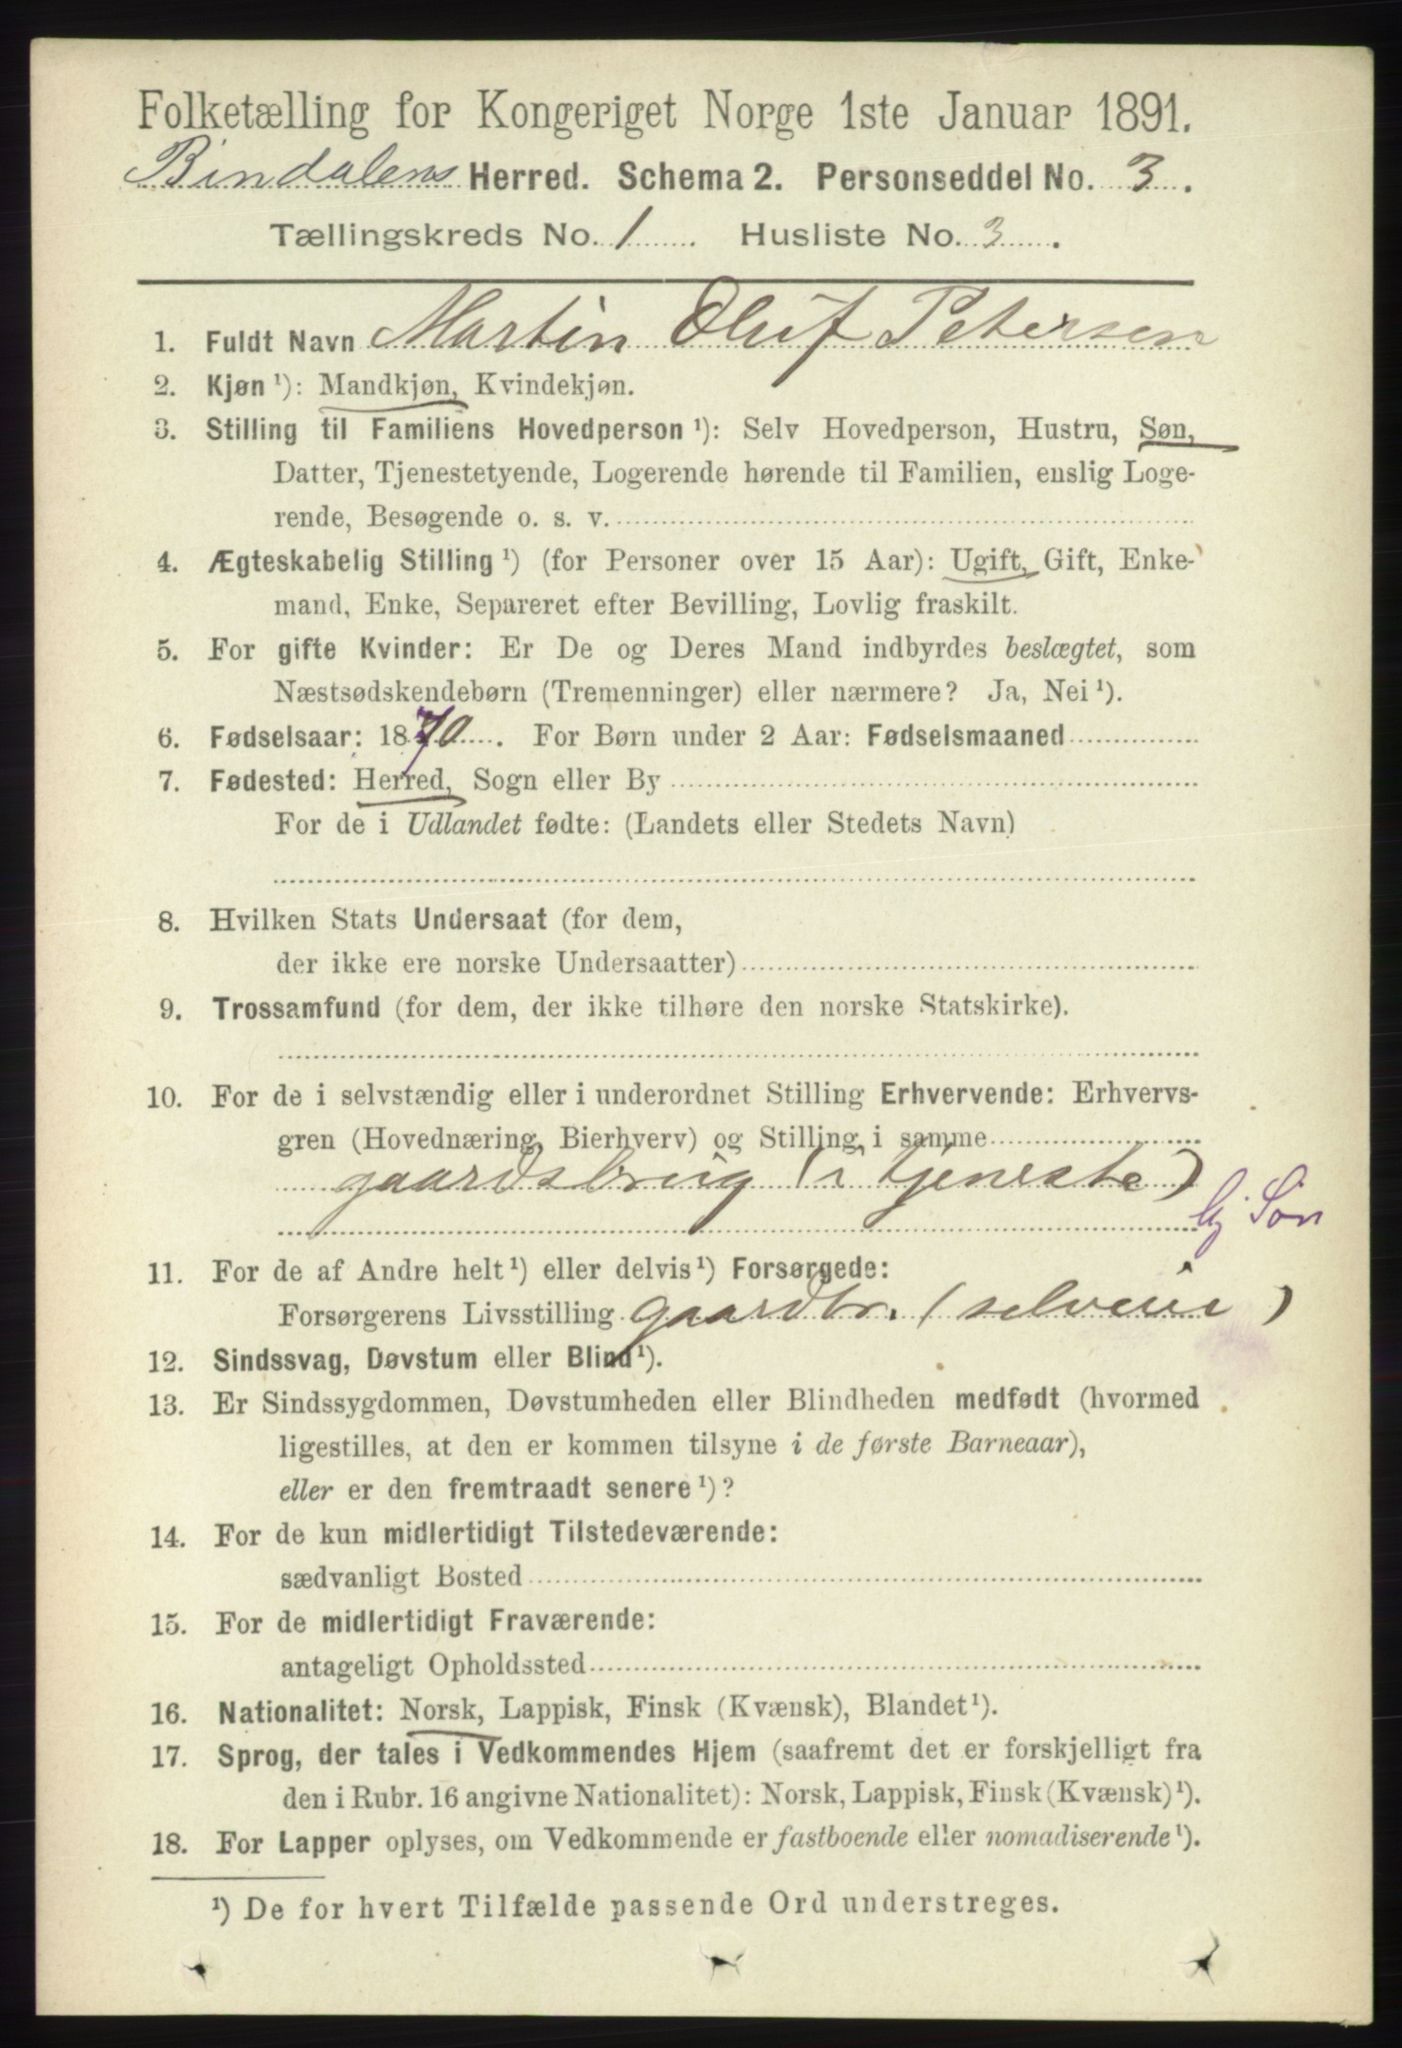 Folketælling for Kongeriget Norge 1ste Januar 1891.
Bindalens Herred. Schema 2. Personseddel No. 3.
Tællingskreds No. 1 Husliste No. 3.
1. Fuldt Navn Martin Oluf Petersen
2. Kjøn ¹): Mandkjøn, Kvindekjøn.
3. Stilling til Familiens Hovedperson ¹): Selv Hovedperson, Hustru, Søn,
Datter, Tjenestetyende, Logerende hørende til Familien, enslig Loge-
rende, Besøgende o. s. v.
4. Ægteskabelig Stilling ¹) (for Personer over 15 Aar): Ugift, Gift, Enke-
mand, Enke, Separeret efter Bevilling, Lovlig fraskilt.
5. For gifte Kvinder: Er De og Deres Mand indbyrdes beslægtet, som
Næstsødskendebørn (Tremenninger) eller nærmere? Ja, Nei ¹).
6. Fødselsaar: 1870. For Børn under 2 Aar: Fødselsmaaned
7. Fødested: Herred, Sogn eller By
For de i Udlandet fødte: (Landets eller Stedets Navn)
8. Hvilken Stats Undersaat (for dem,
der ikke ere norske Undersaatter)
9. Trossamfund (for dem, der ikke tilhøre den norske Statskirke).
10. For de i selvstændig eller i underordnet Stilling Erhvervende: Erhvervs-
gren (Hovednæring, Bierhverv) og Stilling i samme
gaardsbrug (i tjeneste)
Gj. Søn
11. For de af Andre helt ¹) eller delvis ¹) Forsørgede:
Forsørgerens Livsstilling gaardbr. (selveie)
12. Sindssvag, Døvstum eller Blind ¹).
13. Er Sindssygdommen, Døvstumheden eller Blindheden medfødt (hvormed
ligestilles, at den er kommen tilsyne i de første Barneaar),
eller er den fremtraadt senere ¹)?
14. For de kun midlertidigt Tilstedeværende:
sædvanligt Bosted
15. For de midlertidigt Fraværende:
antageligt Opholdssted
16. Nationalitet: Norsk, Lappisk, Finsk (Kvænsk), Blandet ¹).
17. Sprog, der tales i Vedkommendes Hjem (saafremt det er forskjelligt fra
den i Rubr. 16 angivne Nationalitet): Norsk, Lappisk, Finsk (Kvænsk) ¹).
18. For Lapper oplyses, om Vedkommende er fastboende eller nomadiserende ¹).
¹) De for hvert Tilfælde passende Ord understreges.